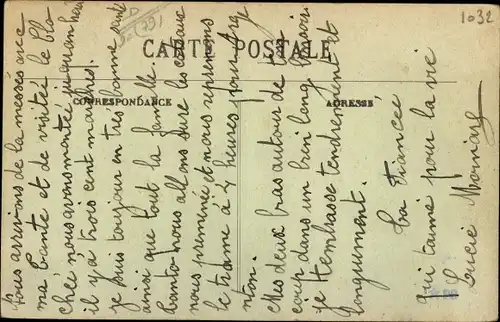 CARTE POSTALE
CORRESPONDANCE
ADRESSE
1032
(79)
nous arrivons de la messe avec
ma tante et de visitée le clo
ché nous avons montée jusqu'an hau
il y à trois cent marches.
je suis toujour en très bonne santé
ainsi que tout la famille
tanto nous allons sure les coteaux
nous premenée et nous reprenons
le trame à 4 heures pour Arg
enton.
Mes deux bras autour de ton
cour dans un bien long baiser
je t'embrasse tendrement et
longuement.
ta Fiancée
qui t'aime pour la vie
Lucie